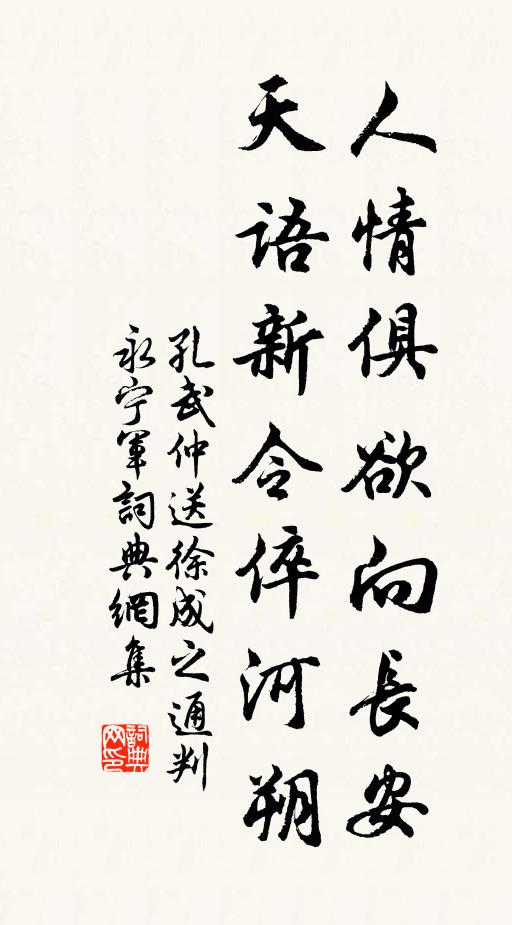 人情俱欲向長安
天語新令倅河朔
孔武仲送徐成之通判
永宁軍詞典網集
詞典
网印